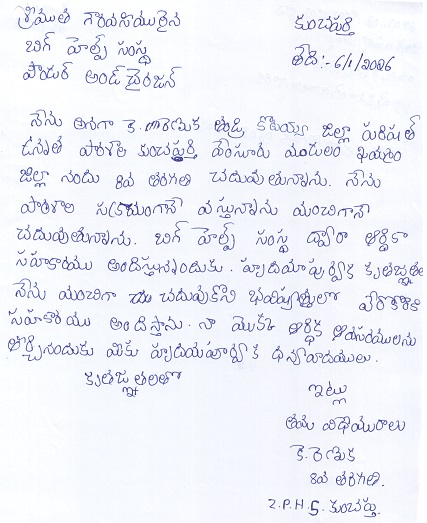 శ్రీయుత గౌరవనీయులైన కుంచపర్తి
బిగ్ హెల్ప్ సంస్థ
తేది:- 6/1/2026
ఫౌండర్ అండ్ చైర్మన్
నేను అనగా కె. రేణుక తండ్రి జిల్లా పరిషత్
ఉన్నత పాఠశాల కుంచపర్తి మండలం ఖమ్మం
జిల్లా నందు 8వ తరగతి చదువుతున్నాను. నేను
పాఠశాల సక్రమంగానే వస్తున్నాను మంచిగానే
చదువుతున్నాను. బిగ్ హెల్ప్ సంస్థ ద్వారా ఆర్థిక
సహకారము అందిస్తున్నందుకు. హృదయపూర్వక కృతజ్ఞతలు
నేను మంచిగా చదువుకొని భవిష్యత్తులో
సహకారము అందిస్తాను. నా యొక్క ఆర్థిక అవసరములను
తీర్చినందుకు మీకు హృదయపూర్వక ధన్యవాదములు.
కృతజ్ఞతలతో
ఇట్లు
తమ విధేయురాలు
కె. రేణుక
8వ తరగతి.
Z.P.H.S. కుంచపర్తి